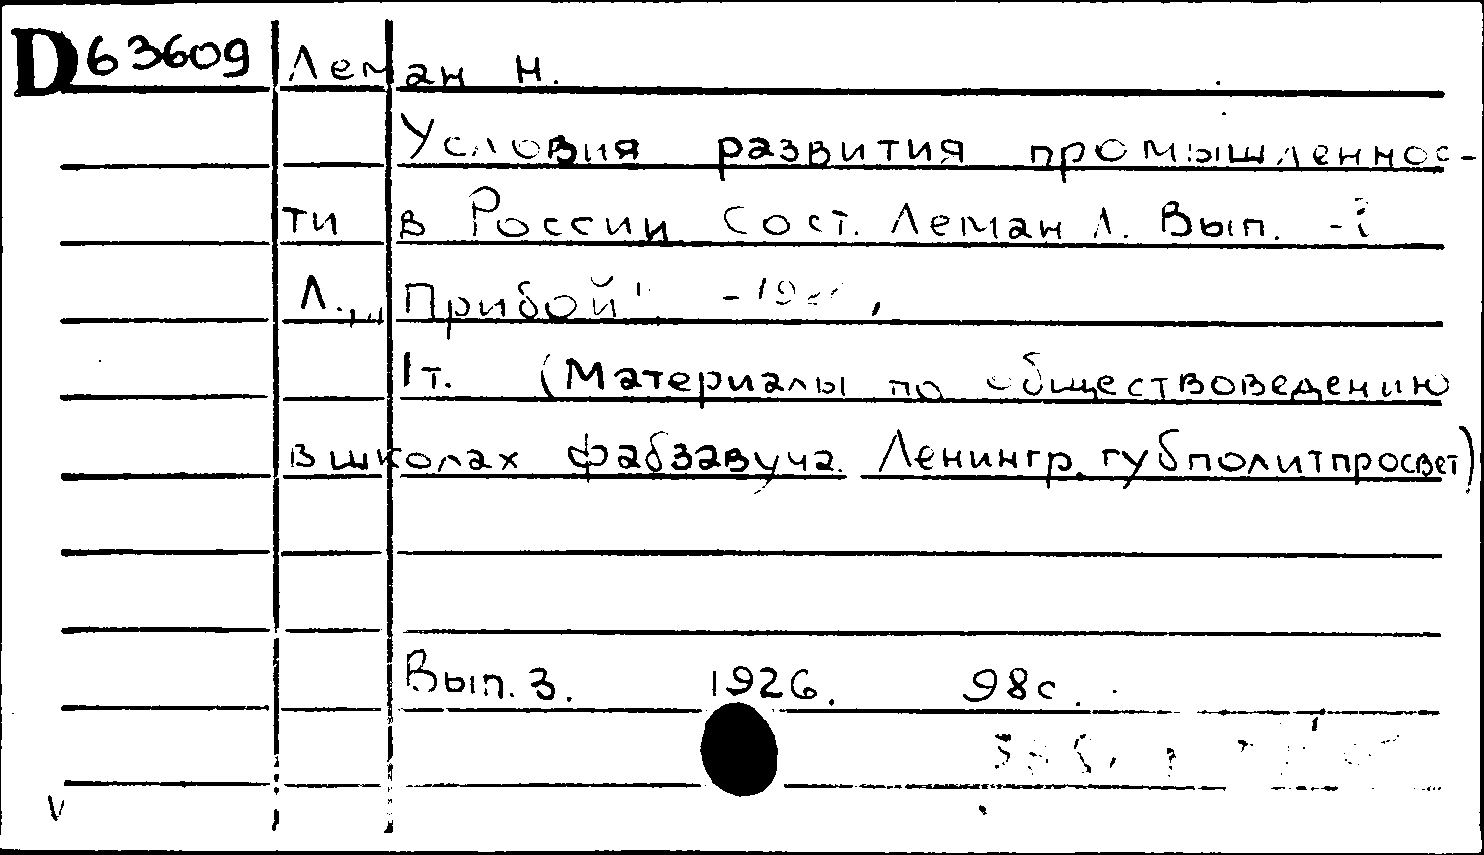 D63609 Леман Н.
Условия развития промышленнос-
ти в России Сост. Леман Л. Вып. -
Л., „Прибой"
1т. (Материалы по обществоведению
в школах фабзавуча. Ленингр. губполитпросвет)
Вып. 3. 1926. 98с.
V